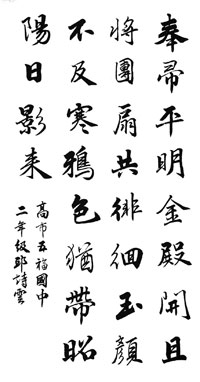 奉帚平明金殿開且
將團扇共徘徊玉顏
不及寒鴉色猶帶昭
陽日影來
高市五福國中
二年級邱詩雲